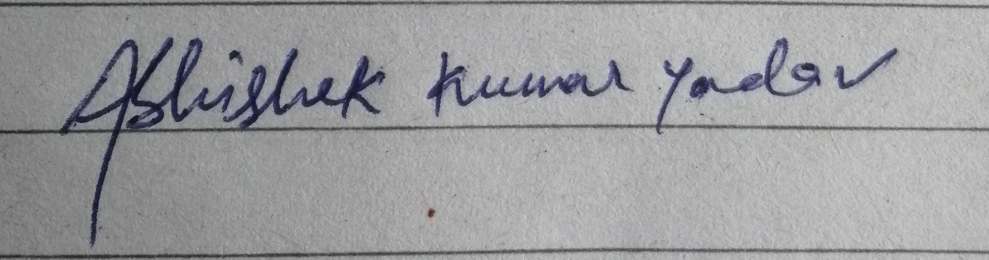 Abhishek Kumar Yadav